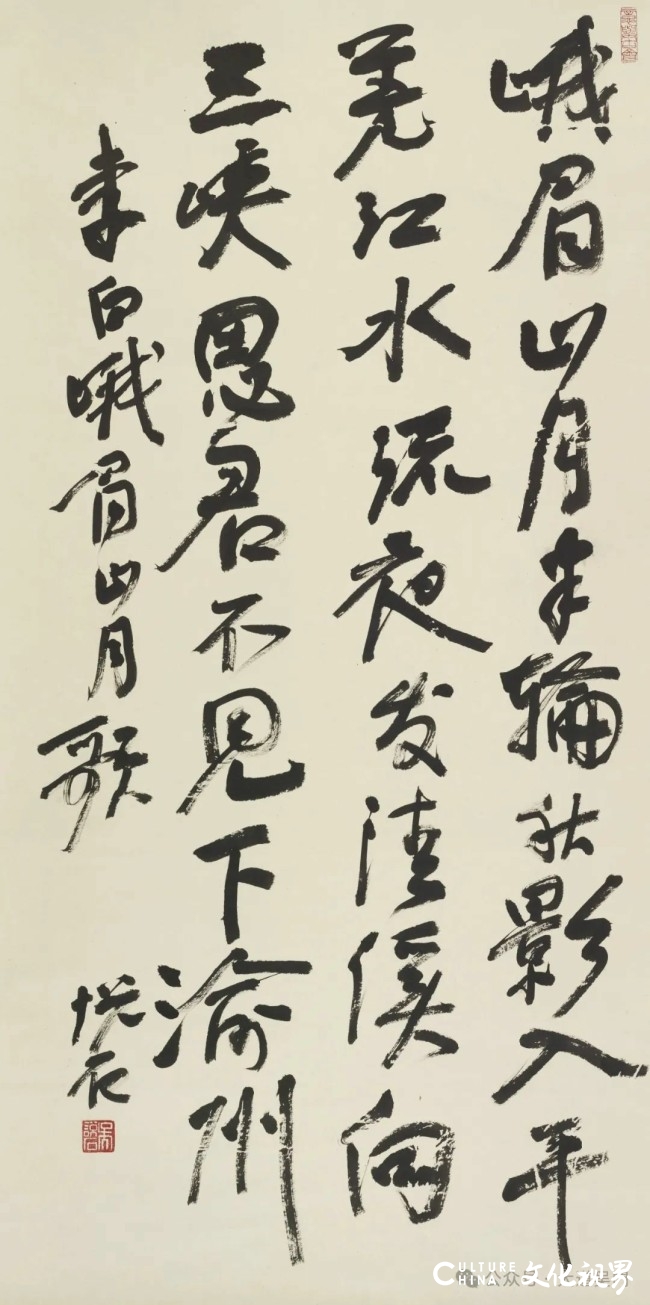 峨眉山月半輪秋影入平
羌江水流夜发清溪向
三峡思君不見下渝州
李白峨眉山月歌
悦石
公众号
CULTURE
CHINA
文化视界